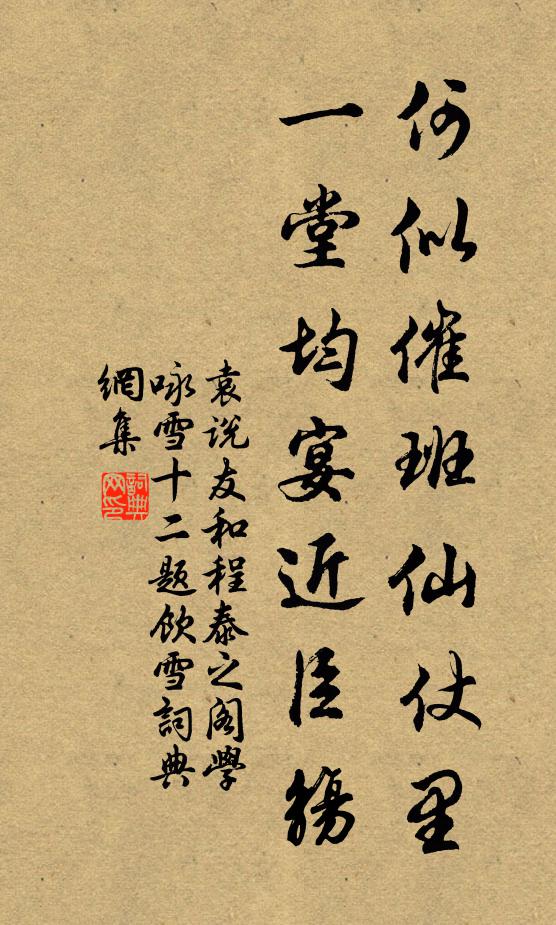 何似催班仙仗里
一堂均宴近臣觴
袁说友和程泰之阁學
咏雪十二题饮雪詞典
網集
詞典網印